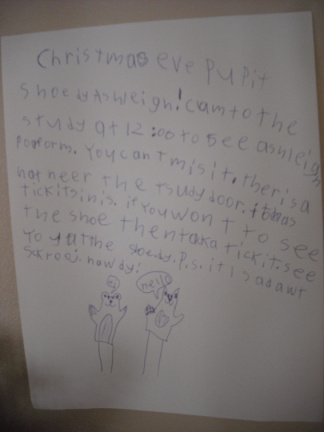 Christmas eve pupit
shoe by Ashleigh! Cam to the
study at 12:00 to see ashleigh
Poform. You can t mis it. ther's a
hat neer the tsudy door. it has
tickits in is. if You won t to see
the shoe then taka tickit. see
Yo yat the P.s. it is adawt
howdy!
hi
hello